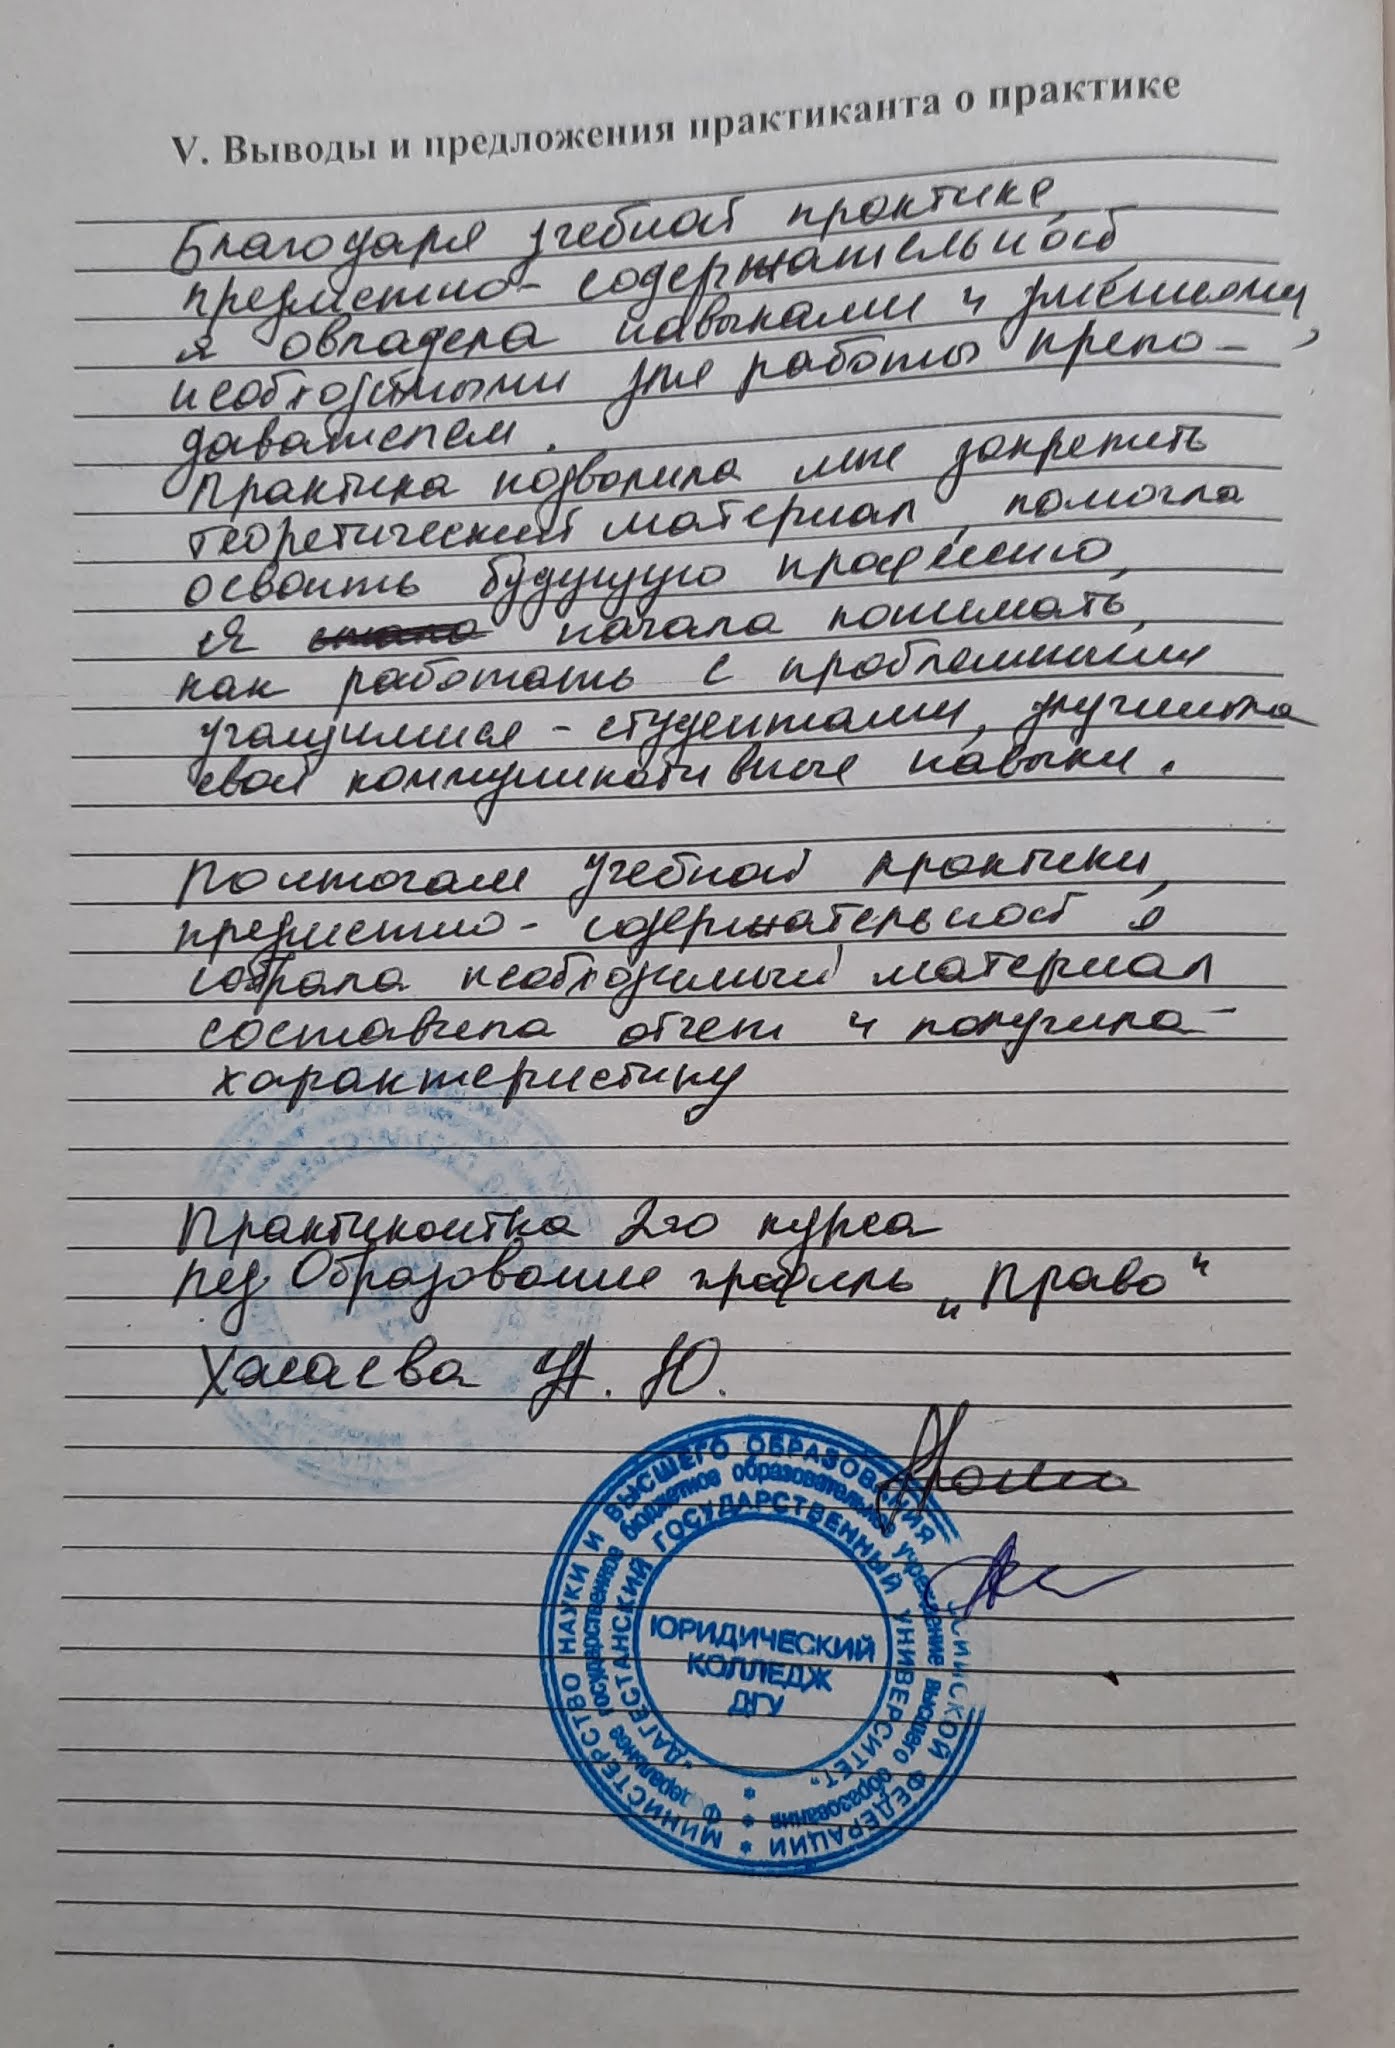 V. Выводы и предложения практиканта о практике
Благодаря учебной практике
предметно-содержательной
я овладела навыками и умениями,
необходимыми для работы препо-
давателем.
Практика позволила мне закрепить
теоретический материал, помогла
освоить будущую профессию,
я начала понимать,
как работать с проблемными
учащимися - студентами, улучшила
свои коммуникативные навыки.
По итогам учебной практики,
предметно-содержательной я
собрала необходимый материал
составила отчет и получила
характеристику
Практикантка 2го курса
пед Образование профиль „Право“
Ю.
МИНИСТЕРСТВО НАУКИ И ВЫСШЕГО ОБРАЗОВАНИЯ РОССИЙСКОЙ ФЕДЕРАЦИИ
Федеральное государственное бюджетное образовательное учреждение высшего образования
"ДАГЕСТАНСКИЙ ГОСУДАРСТВЕННЫЙ УНИВЕРСИТЕТ"
ЮРИДИЧЕСКИЙ
КОЛЛЕДЖ
ДГУ